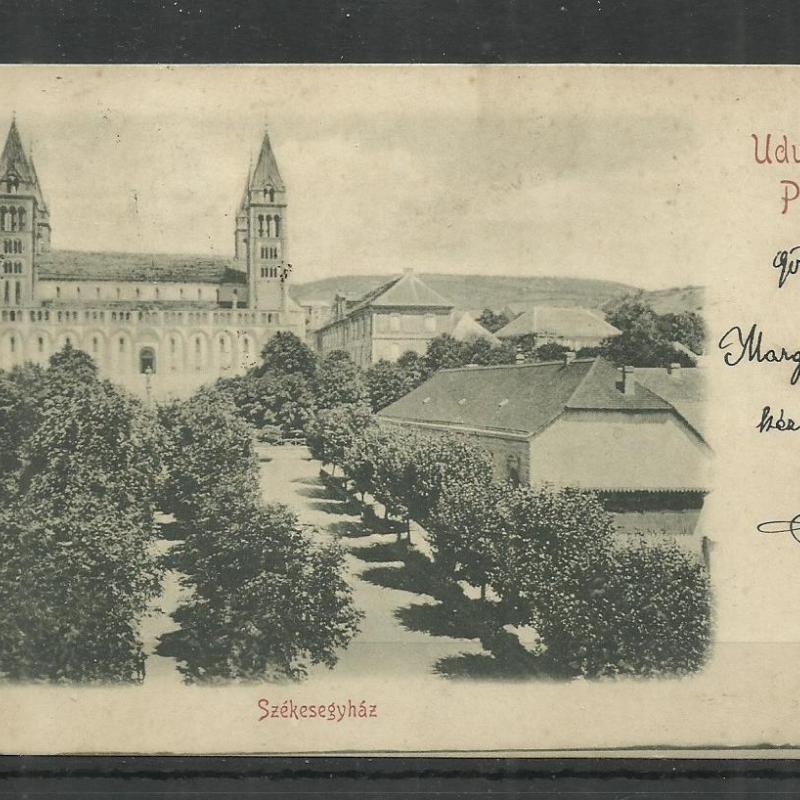 Udv
P
Marg
kéz
Székesegyház